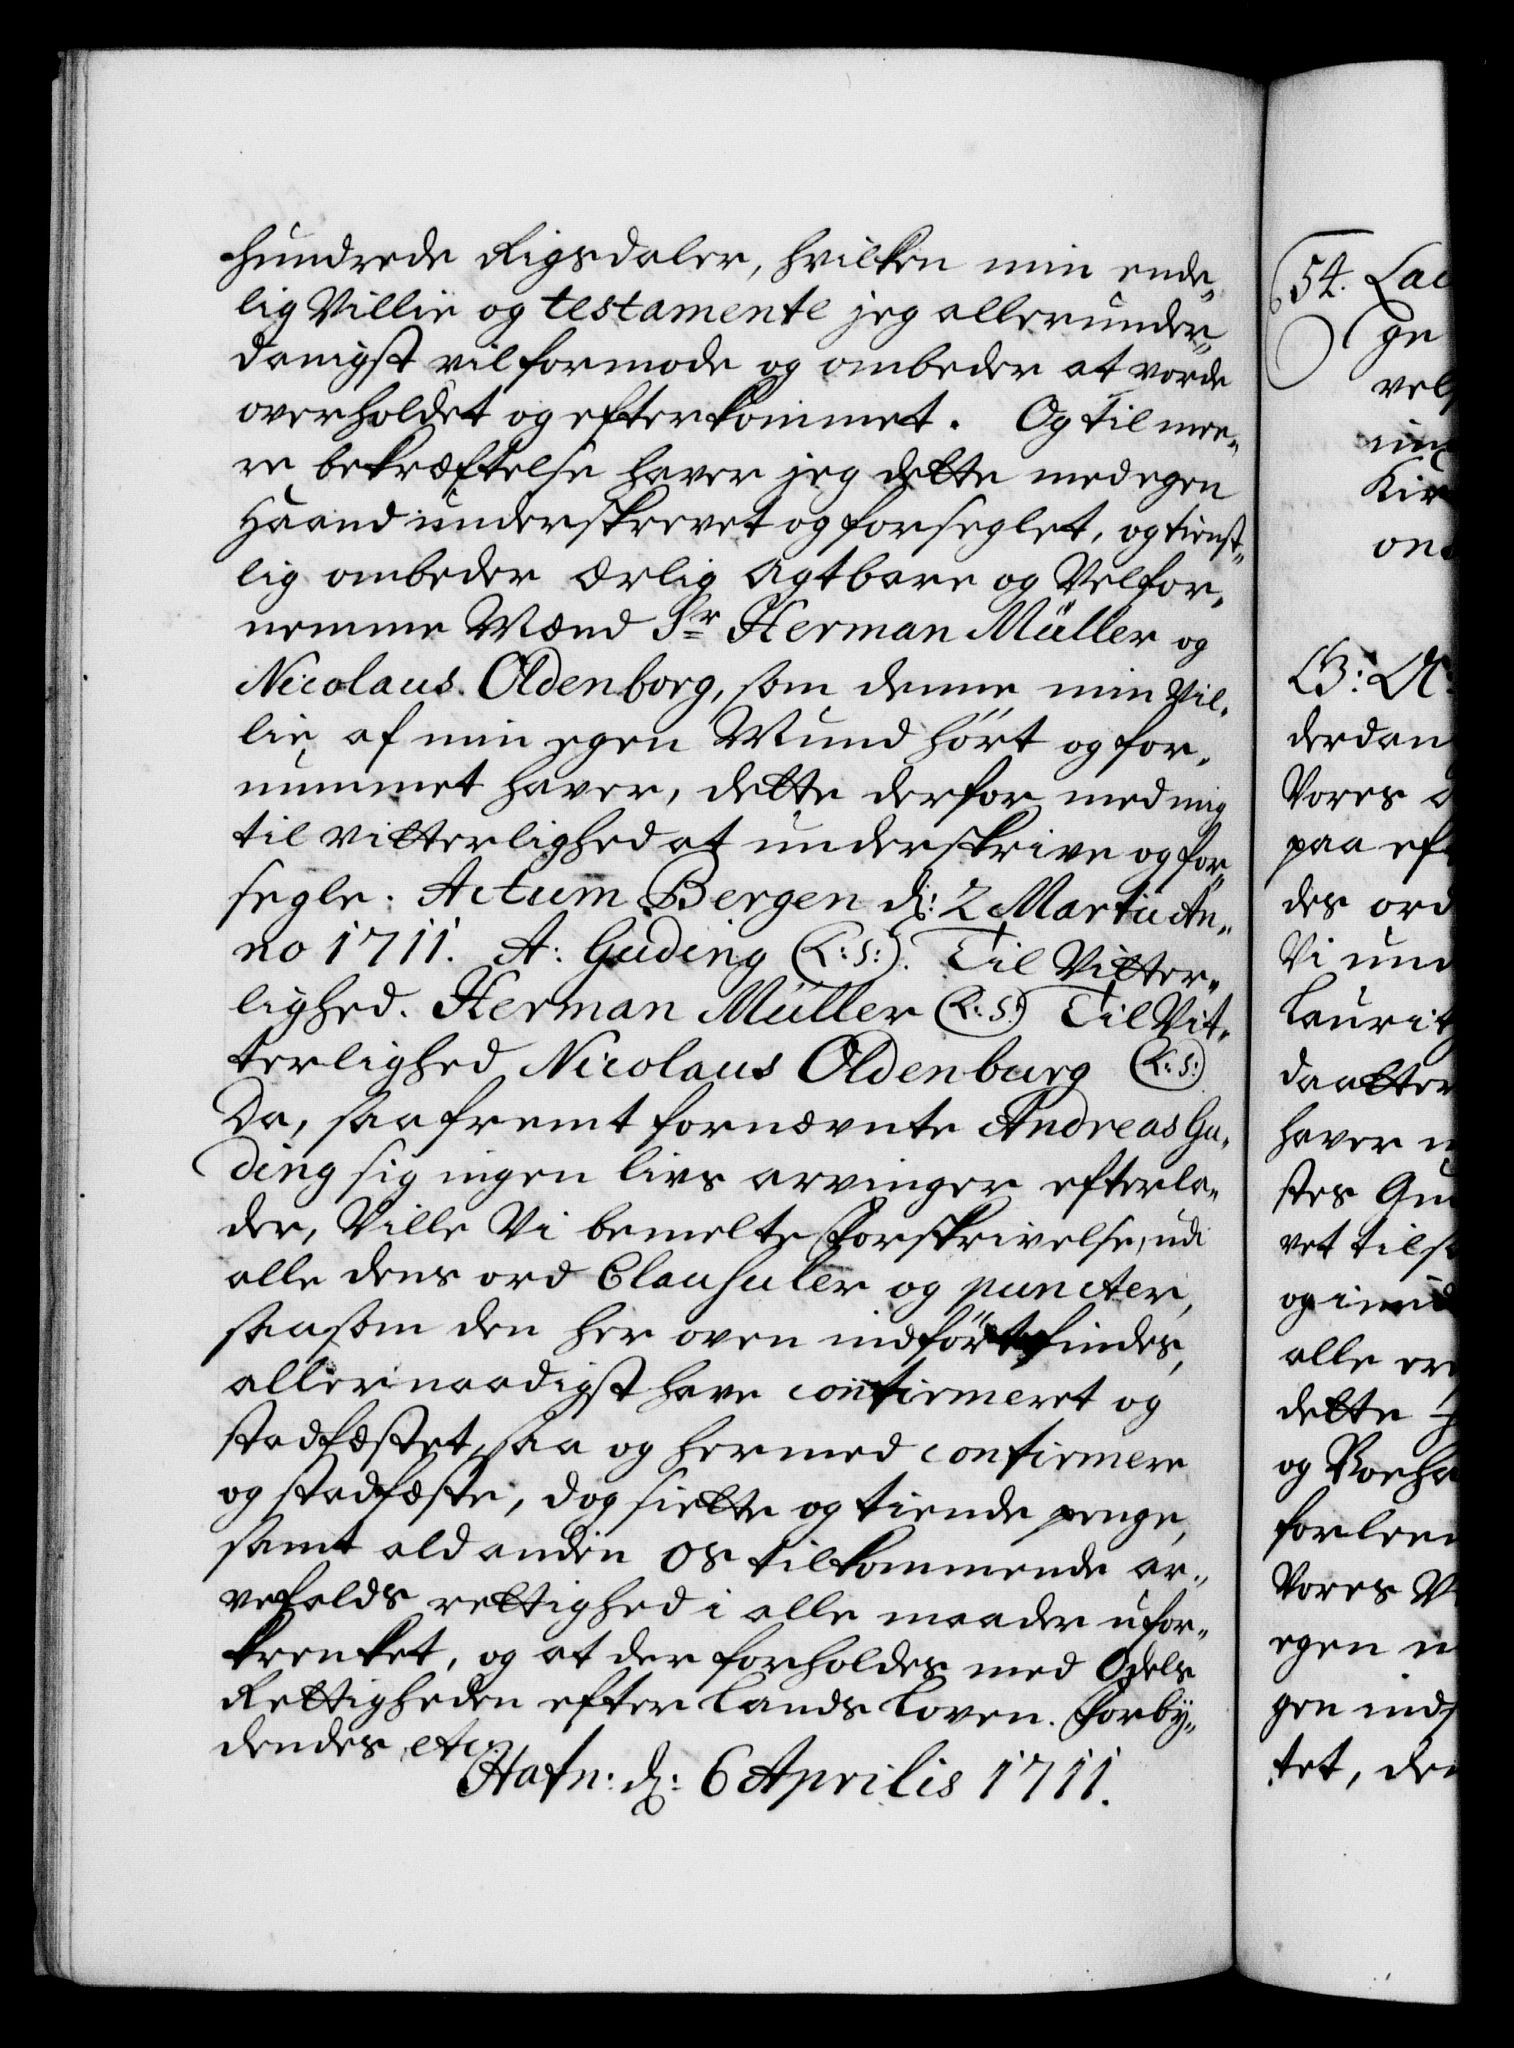 hundrede Rigsdaler, hvilken min ende„
lig Villie og testamente jeg allerunder„
danigst vil formode og ombeder at vorde
overholdet og efterkommet. Og til mee„
re bekræftelse haver jeg dette med egen
Haand underskrevet og forseglet, og tienst„
lig ombeder Ærlig Agtbare og Velfor„
nemme Mænd Sr Herman Müller og
Nicolaus Oldenborg, som denne min Vil„
lie af min egen Mund hört og for„
nummet haver, dette derfor med mig
til vitterlighed at underskrive og for„
segle. Actum Bergen d: 2 Martii An„
no 1711. A: Guding (L:S:). Til Vitter„
lighed. Herman Müller (L:S:) Til Vit„
terlighed Nicolaus Oldenburg (L:S:)
Da, saafremt fornævnte Andreas Gu„
ding sig ingen livs arvinger efterla„
der, Ville Vi bemelte Forskrivelse, udi
alle dens ord Clausuler og puncter,
saasom den her oven indfört findes,
allernaadigst have confirmeret og
stadfæstet, saa og hermed confirmere
og stadfæste, dog siette og tiende penge,
samt ald anden os tilkommende ar„
vefalds rettighed i alle maader ufor„
krenket, og at der forholdes med Odels
Rettigheden efter Lands Loven. Forby„
dendes etc.
Hafn: d: 6 Aprilis 1711.
54. Lau
ge
vels
Kir
G: A:
derdan
Vores
paa ef
des ord
Vi und
Laurit
daatter
haver
stes
vet til
alle
dette
og
forleen
Vores
egen
gen ind
tet, den